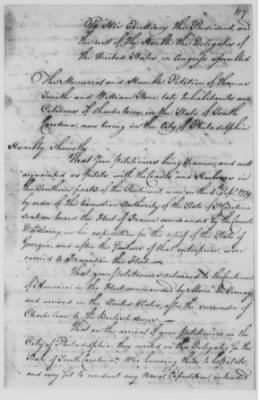 To His Excellency the President, and
the rest of the Honble the Delegates of
the United States in Congress assembled
The Memorial and Humble Petition of Thomas
Smith and William Stone, late Inhabitants and
Citizens of Charlestown, in the State of South
Carolina, now living in the City of Philadelphia
Humbly Sheweth
That Your Petitioners being Seamen, and well
acquainted as Pilots with the Coasts and Harbours in
the Southern parts of the Continent, were on the 2d Septr. 1779
by order of the Executive Authority of the State of So Carolina
sent on board the Fleet of France commanded by the Count
D'Estaing, on his expedition for the relief of the State of
Georgia, and after the failure of that enterprize, were
carried to France in the Fleet.
That your Petitioners returned to the
of America in the Fleet commanded by Monsr De Ternay
and arrived in the United States, after the surrender of
Charlestown to the British Arms.
That on the arrival of your Petitioners in the
City of Philadelphia, they waited on the Delegates for the
State of South Carolina, Who knowing them to be Pilots,
and very fit to conduct any Naval Expedition intended